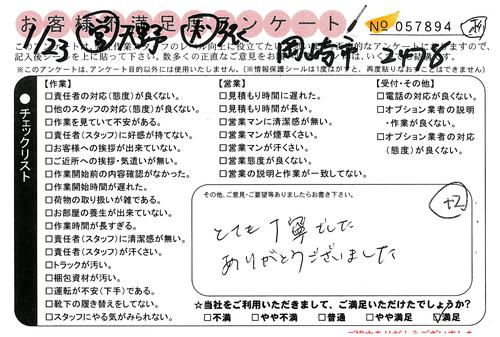 お客様満足度アンケート
No 057894
1/23 天野 岡崎市 2478
記入後シールを上に貼って下さい。
※このアンケートは、アンケート目的以外には使用いたしません。(※情報保護シールは1度はがすと、再度貼りなおすことはできません)
●チェックリスト
【作業】
□責任者の対応(態度)が良くない。
□他のスタッフの対応(態度)が良くない。
□作業を見ていて不安がある。
□責任者(スタッフ)に好感が持てない。
□お客様への挨拶が出来ていない。
□ご近所への挨拶・気遣いが無い。
□作業開始前の内容確認がなかった。
□作業開始時間が遅れた。
□荷物の取り扱いが雑である。
□お部屋の養生が出来ていない。
□作業時間が長すぎる。
□責任者(スタッフ)に清潔感が無い。
□責任者(スタッフ)が汗くさい。
□トラックが汚い。
□梱包資材が汚い。
□運転が不安(下手)である。
□靴下の履き替えをしてない。
□スタッフにやる気がみられない。
【営業】
□見積もり時間に遅れた。
□見積もり時間が長い。
□営業マンに清潔感が無い。
□営業マンが煙草くさい。
□営業マンが汗くさい。
□営業態度が良くない。
□営業の説明と作業が一致してない。
【受付・その他】
□電話の対応が良くない。
□オプション業者の説明
・作業が良くない。
□オプション業者の対応
(態度)が良くない。
その他、ご意見・ご要望等ありましたらお書き下さい。
+2
とても丁寧でした
ありがとうございました
☆当社をご利用いただきまして、ご満足いただけたでしょうか?
□不満 □やや不満 □普通 □やや満足 ☑満足